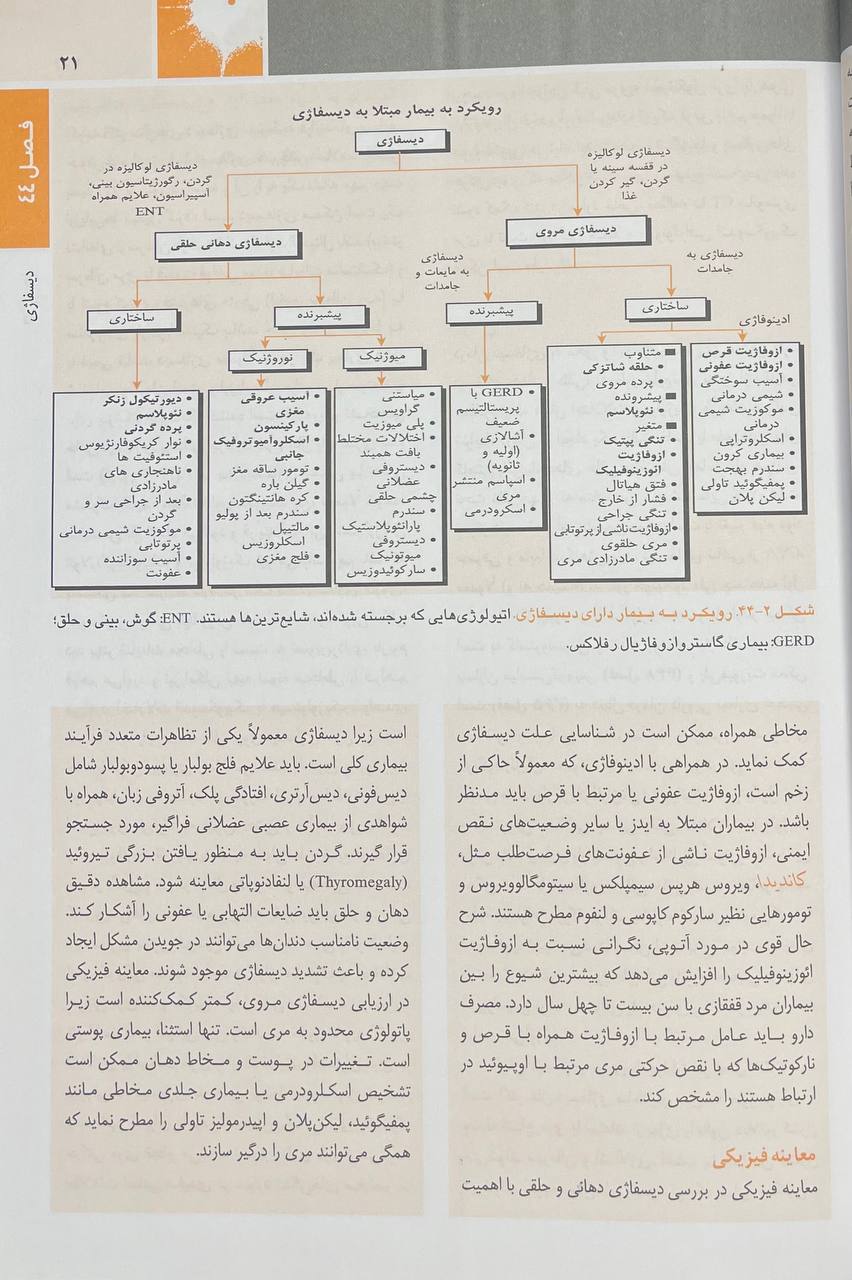 ۲۱
فصل ٤٤
دیسفاژی
رویکرد به بیمار مبتلا به دیسفاژی
دیسفاژی
دیسفاژی لوکالیزه
در قفسه سینه یا
گردن، گیر کردن
غذا
دیسفاژی لوکالیزه در
گردن، رگورژیتاسیون بینی،
آسپیراسیون، علایم همراه
ENT
دیسفاژی مروی
دیسفاژی دهانی حلقی
دیسفاژی به
جامدات
دیسفاژی
به مایعات و
جامدات
ساختاری
پیشبرنده
پیشبرنده
ساختاری
ادینوفاژی
میوژنیک
نوروژنیک
• ازوفاژیت قرص
• ازوفاژیت عفونی
• آسیب سوختگی
• شیمی درمانی
• موکوزیت شیمی
درمانی
• اسکلروتراپی
• بیماری کرون
• سندرم بهجت
• پمفیگوئید تاولی
• لیکن پلان
■ متناوب
• حلقه شاتزکی
• پرده مروی
■ پیشرونده
• نئوپلاسم
■ متغیر
• تنگی پپتیک
• ازوفاژیت
ائوزینوفیلیک
• فتق هیاتال
• فشار از خارج
• تنگی جراحی
• ازوفاژیت ناشی از پرتوتابی
• مری حلقوی
• تنگی مادرزادی مری
• GERD با
پریستالتیسم
ضعیف
• آشالازی
(اولیه و
ثانویه)
• اسپاسم منتشر
مری
• اسکرودرمی
• میاستنی
گراویس
• پلی میوزیت
• اختلالات مختلط
بافت همبند
• دیستروفی
عضلانی
چشمی حلقی
• سندرم
پارانئوپلاستیک
• دیستروفی
میوتونیک
• سارکوئیدوزیس
• آسیب عروقی
مغزی
• پارکینسون
• اسکلروآمیوتروفیک
جانبی
• تومور ساقه مغز
• گیلن باره
• کره هانتینگتون
• سندرم بعد از پولیو
• مالتیپل
اسکلروزیس
• فلج مغزی
• دیورتیکول زنکر
• نئوپلاسم
• پرده گردنی
• نوار کریکوفارنژیوس
• استئوفیت ها
• ناهنجاری های
مادرزادی
• بعد از جراحی سر و
گردن
• موکوزیت شیمی درمانی
• پرتوتابی
• آسیب سوزاننده
• عفونت
شکل ۲-۴۴. رویکرد به بیمار دارای دیسفاژی. اتیولوژی‌هایی که برجسته شده‌اند، شایع‌ترین‌ها هستند. ENT: گوش، بینی و حلق؛
GERD: بیماری گاستروازوفاژیال رفلاکس.
مخاطی همراه، ممکن است در شناسایی علت دیسفاژی
کمک نماید. در همراهی با ادینوفاژی، که معمولاً حاکی از
زخم است، ازوفاژیت عفونی یا مرتبط با قرص باید مدنظر
باشد. در بیماران مبتلا به ایدز یا سایر وضعیت‌های نقص
ایمنی، ازوفاژیت ناشی از عفونت‌های فرصت‌طلب مثل،
کاندیدا، ویروس هرپس سیمپلکس یا سیتومگالوویروس و
تومورهایی نظیر سارکوم کاپوسی و لنفوم مطرح هستند. شرح
حال قوی در مورد آتوپی، نگرانی نسبت به ازوفاژیت
ائوزینوفیلیک را افزایش می‌دهد که بیشترین شیوع را بین
بیماران مرد قفقازی با سن بیست تا چهل سال دارد. مصرف
دارو باید عامل مرتبط با ازوفاژیت همراه با قرص و
نارکوتیک‌ها که با نقص حرکتی مری مرتبط با اوپیوئید در
ارتباط هستند را مشخص کند.
معاینه فیزیکی
معاینه فیزیکی در بررسی دیسفاژی دهانی و حلقی با اهمیت
است زیرا دیسفاژی معمولاً یکی از تظاهرات متعدد فرآیند
بیماری کلی است. باید علایم فلج بولبار یا پسودوبولبار شامل
دیس‌فونی، دیس‌آرتری، افتادگی پلک، آتروفی زبان، همراه با
شواهدی از بیماری عصبی عضلانی فراگیر، مورد جستجو
قرار گیرند. گردن باید به منظور یافتن بزرگی تیروئید
(Thyromegaly) یا لنفادنوپاتی معاینه شود. مشاهده دقیق
دهان و حلق باید ضایعات التهابی یا عفونی را آشکار کند.
وضعیت نامناسب دندان‌ها می‌توانند در جویدن مشکل ایجاد
کرده و باعث تشدید دیسفاژی موجود شوند. معاینه فیزیکی
در ارزیابی دیسفاژی مروی، کمتر کمک‌کننده است زیرا
پاتولوژی محدود به مری است. تنها استثنا، بیماری پوستی
است. تغییرات در پوست و مخاط دهان ممکن است
تشخیص اسکلرودرمی یا بیماری جلدی مخاطی مانند
پمفیگوئید، لیکن‌پلان و اپیدرمولیز تاولی را مطرح نماید که
همگی می‌توانند مری را درگیر سازند.